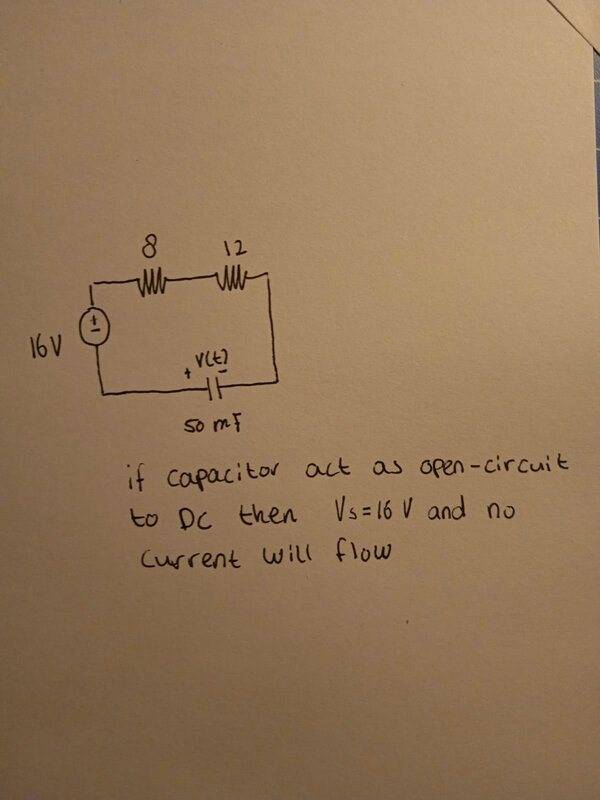 8 12
+
-
16V
+ V(t) -
50 mF
if capacitor act as open-circuit
to DC then Vs=16 V and no
current will flow